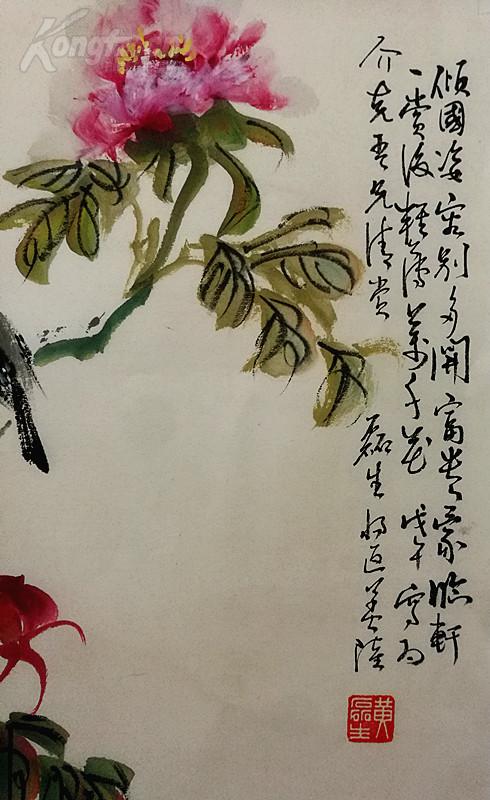 傾國姿容別多開富貴家臨軒
一賞後輕薄萬千花 戊午寫為
介克吾兄清賞 磊生於返美陸
黃磊生
Kongf